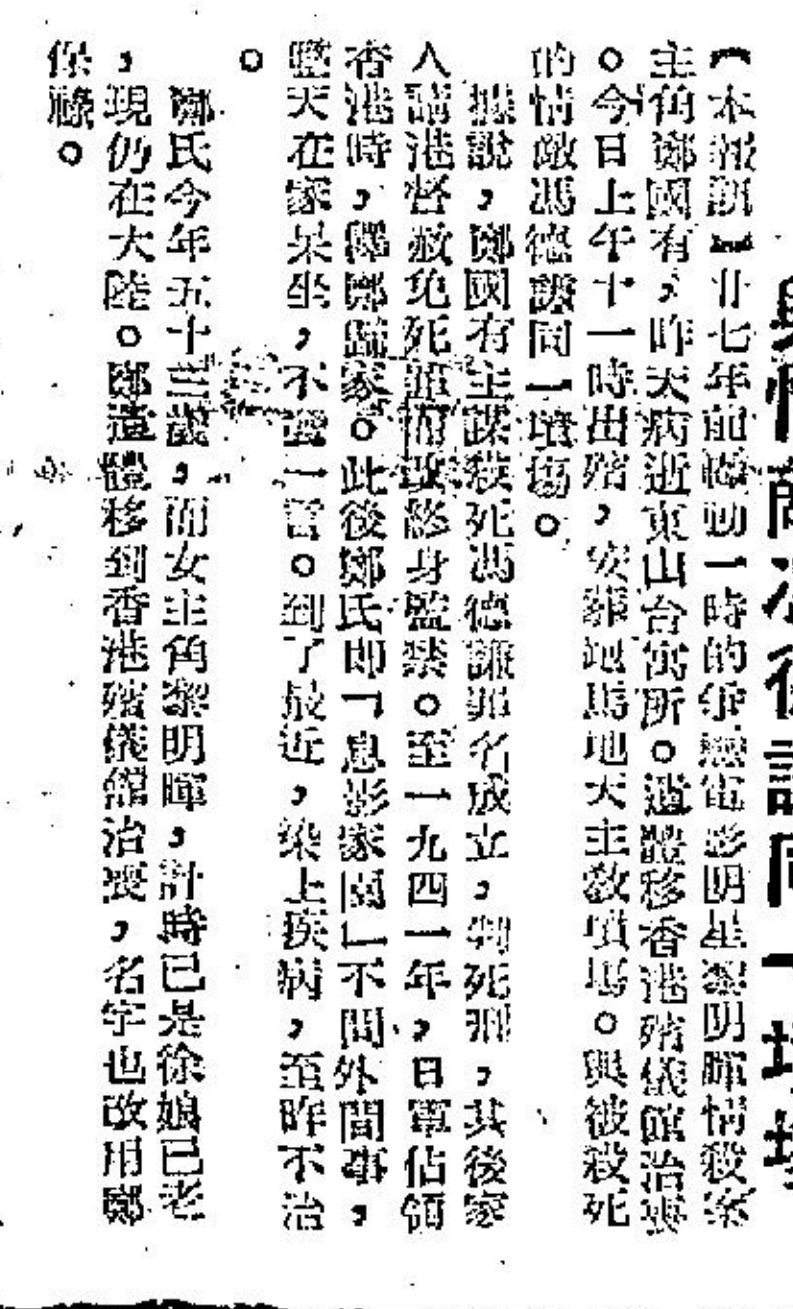 情敵冴後請同一墳塲
【本報訊】廿七年前轟動一時的爭戀電影明星黎明暉情殺案
主角鄭國有，昨天病逝東山台寓所。遺體移香港殯儀館治喪
。今日上午十一時出殯，安葬跑馬地天主教墳塲。與被殺死
的情敵馮德謙同一墳塲。
據說，鄭國有主謀殺死馮德謙罪名成立，判死刑，其後家
人請港督赦免死罪而改終身監禁。至一九四一年，日軍佔領
香港時，釋鄭歸家。此後鄭氏即「息影家園」不問外間事，
整天在家呆坐，不發一言。到了最近，染上疾病，至昨不治
。
鄭氏今年五十三歲，而女主角黎明暉，計時已是徐娘已老
，現仍在大陸。鄭遺體移到香港殯儀館治喪，名字也改用鄭
保祿。